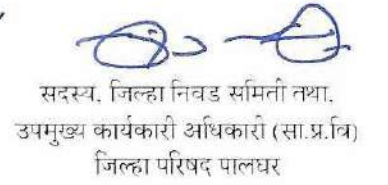 सदस्य, जिल्हा निवड समिती तथा,
उपमुख्य कार्यकारी अधिकारी (सा.प्र.वि)
जिल्हा परिषद पालघर